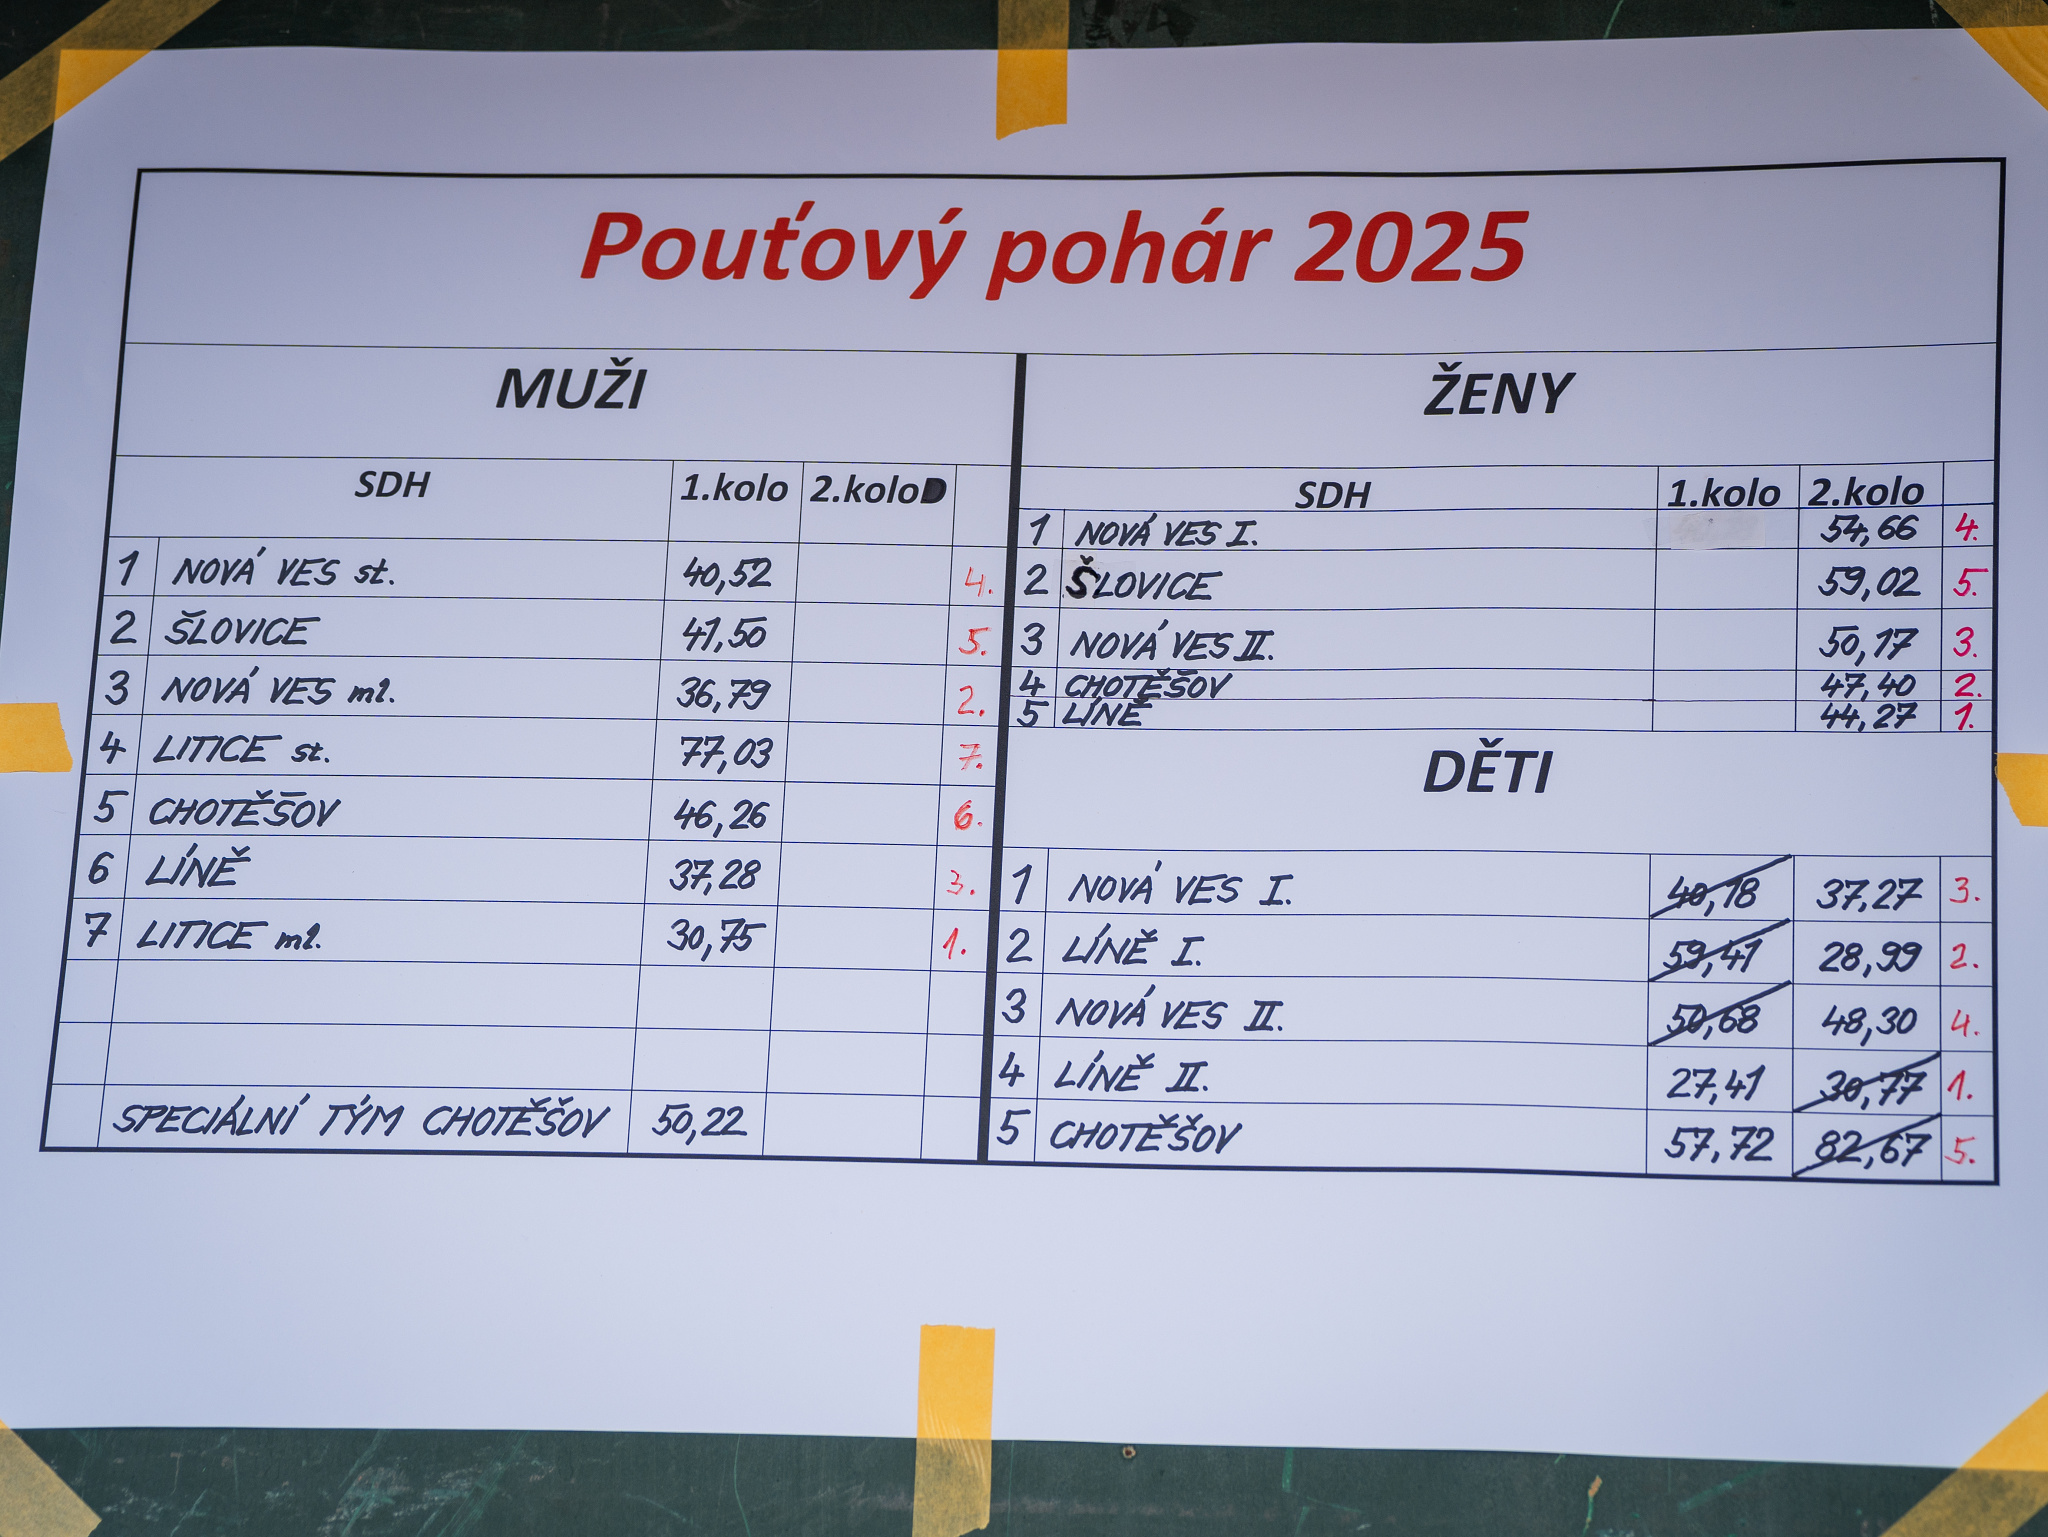 Pouťový pohár 2025
MUŽI
SDH 1.kolo 2.kolo
1 NOVÁ VES st. 40,52 4.
2 ŠLOVICE 41,50 5.
3 NOVÁ VES ml. 36,79 2.
4 LITICE st. 77,03 7.
5 CHOTĚŠOV 46,26 6.
6 LÍNĚ 37,28 3.
7 LITICE ml. 30,75 1.
SPECIÁLNÍ TÝM CHOTĚŠOV 50,22
ŽENY
SDH 1.kolo 2.kolo
1 NOVÁ VES I. 54,66 4.
2 ŠLOVICE 59,02 5.
3 NOVÁ VES II. 50,17 3.
4 CHOTĚŠOV 47,40 2.
5 LÍNĚ 44,27 1.
DĚTI
1 NOVÁ VES I. 40,18 37,27 3.
2 LÍNĚ I. 59,41 28,99 2.
3 NOVÁ VES II. 50,68 48,30 4.
4 LÍNĚ II. 27,41 30,77 1.
5 CHOTĚŠOV 57,72 82,67 5.